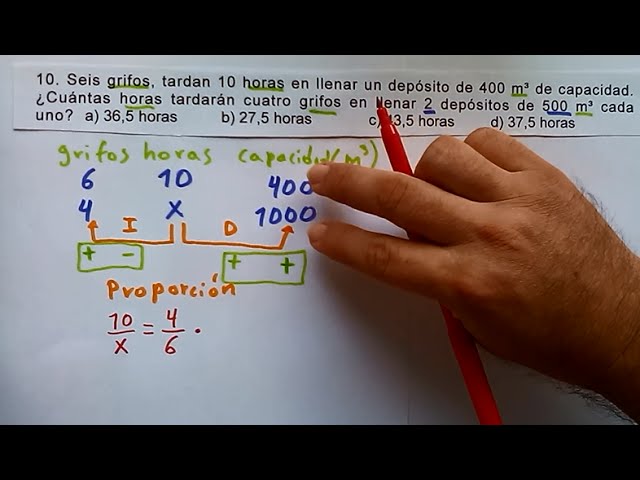 10. Seis grifos, tardan 10 horas en llenar un depósito de 400 m³ de capacidad.
¿Cuántas horas tardarán cuatro grifos en llenar 2 depósitos de 500 m³ cada
uno? a) 36,5 horas b) 27,5 horas c) 43,5 horas d) 37,5 horas
grifos horas capacidad (m³)
6 10 400
4 X 1000
I D
+ - + +
Proporción
10/x = 4/6 ·